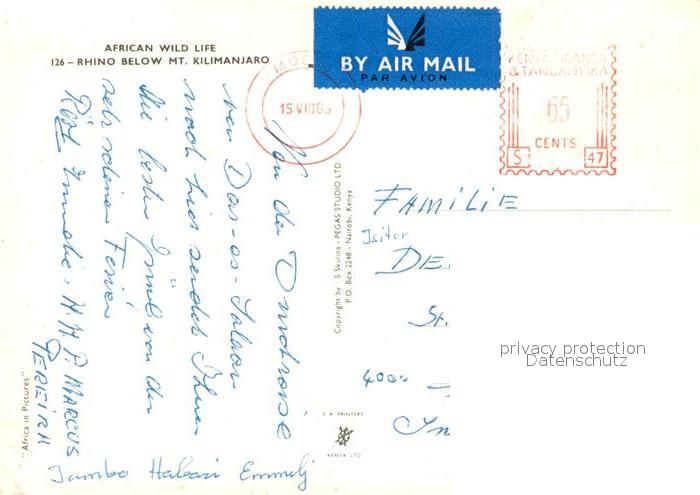 AFRICAN WILD LIFE
126 – RHINO BELOW MT. KILIMANJARO
BY AIR MAIL
PAR AVION
MOS
15 VIII 63
KENYA UGANDA
& TANGANYIKA
65
CENTS
S 47
Von der Durchreise
von Dar-es-Salaam
nach hier sendet Ihnen
die besten Grüsse von den
sehr schönen Ferien
H.H.P. MARCUS
PEREIRA
Jambo Habari
Copyright by S Skulina - PEGAS STUDIO LTD.
P.O. Box 2248 - Nairobi, Kenya
FAMILIE
DE
St.
4000
"Africa in Pictures"
S. A. PRINTERS
KENYA LTD.
privacy protection
Datenschutz